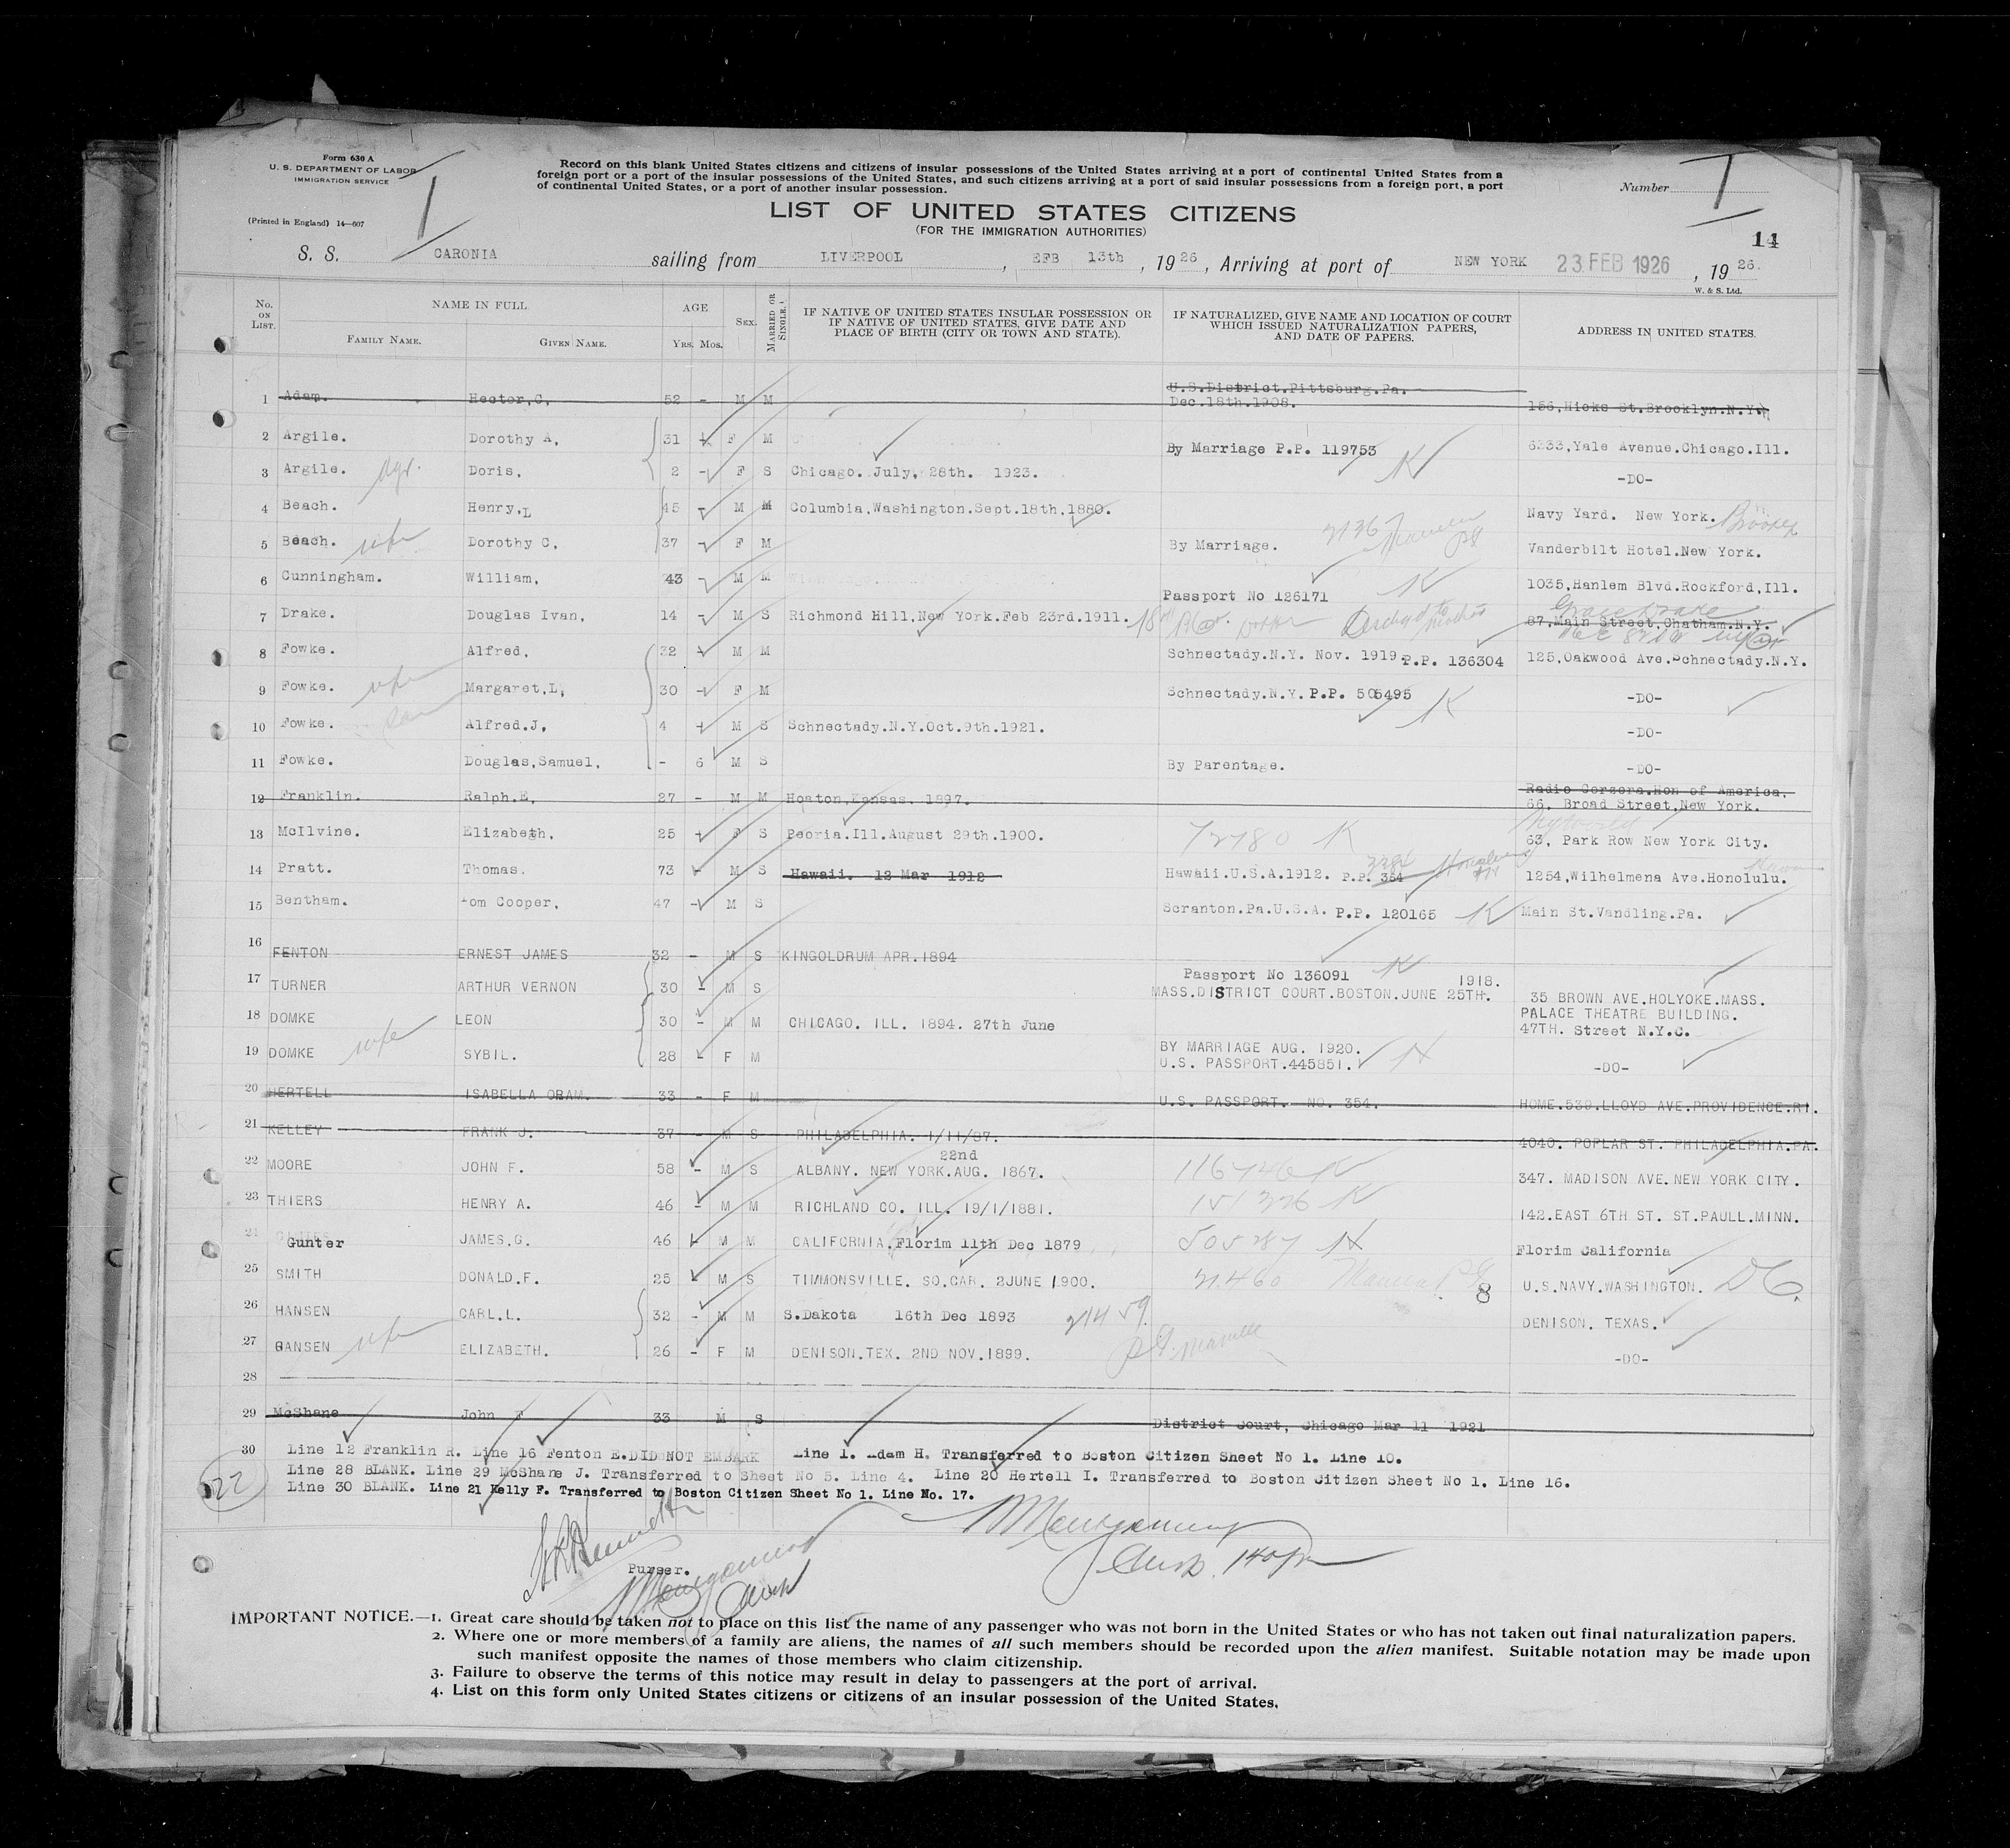 Form 630 A
U. S. DEPARTMENT OF LABOR
IMMIGRATION SERVICE
(Printed in England) 14—607
Record on this blank United States citizens and citizens of insular possessions of the United States arriving at a port of continental United States from a
foreign port or a port of the insular possessions of the United States, and such citizens arriving at a port of said insular possessions from a foreign port, a port
of continental United States, or a port of another insular possession.
Number
LIST OF UNITED STATES CITIZENS
(FOR THE IMMIGRATION AUTHORITIES)
14
S. S. CARONIA sailing from LIVERPOOL, EFB 13th, 1926, Arriving at port of NEW YORK 23 FEB 1926, 1926.
W. & S. Ltd.
No. ON LIST. NAME IN FULL FAMILY NAME. GIVEN NAME. AGE YRS. MOS. SEX. MARRIED OR SINGLE. IF NATIVE OF UNITED STATES INSULAR POSSESSION OR IF NATIVE OF UNITED STATES, GIVE DATE AND PLACE OF BIRTH (CITY OR TOWN AND STATE). IF NATURALIZED, GIVE NAME AND LOCATION OF COURT WHICH ISSUED NATURALIZATION PAPERS, AND DATE OF PAPERS. ADDRESS IN UNITED STATES.
1 Adam. Hector,C, 52 - M M U.S.District.Pittsburg.Pa. Dec.18th.1908. 156,Hicks St.Brooklyn.N.Y.
2 Argile. Dorothy A, 31 F M By Marriage P.P. 119753 6333,Yale Avenue.Chicago.Ill.
3 Argile. Doris, 2 - F S Chicago. July, 28th. 1923. K -DO-
4 Beach. Henry,L 45 - M M Columbia,Washington.Sept.18th,1880. Navy Yard. New York.
5 Beach. wife Dorothy C, 37 - F M By Marriage. Vanderbilt Hotel.New York.
6 Cunningham. William, 43 - M M Passport No 126171 K 1035,Hanlem Blvd.Rockford,Ill.
7 Drake. Douglas Ivan, 14 - M S Richmond Hill,New York.Feb 23rd.1911. 87,Main Street,Chatham.N.Y.
8 Fowke. Alfred, 32 - M M Schnectady.N.Y. Nov. 1919 P.P. 136304 125,Oakwood Ave.Schnectady.N.Y.
9 Fowke. wife Margaret,L, 30 - F M Schnectady.N.Y. P.P. 505495 K -DO-
10 Fowke. Alfred.J, 4 - M S Schnectady.N.Y.Oct.9th.1921. -DO-
11 Fowke. Douglas,Samuel, - 6 M S By Parentage. -DO-
12 Franklin. Ralph.E, 27 - M M Hoaton,Kansas. 1897. Radio Corzora.Hon of America. 66, Broad Street,New York.
13 McIlvine. Elizabeth, 25 - F S Peoria.Ill.August 29th.1900. 72780 K 63, Park Row New York City.
14 Pratt. Thomas. 73 - M S Hawaii. 12 Mar 1912 Hawaii.U.S.A.1912. P.P. 354 1254,Wilhelmena Ave.Honolulu.
15 Bentham. Tom Cooper, 47 - M S Scranton.Pa.U.S.A. P.P. 120165 K Main St.Vandling.Pa.
16 FENTON ERNEST JAMES 32 - M S KINGOLDRUM APR.1894
17 TURNER ARTHUR VERNON 30 - M S Passport No 136091 K 1918. MASS.DISTRICT COURT.BOSTON.JUNE 25TH. 35 BROWN AVE.HOLYOKE.MASS.
18 DOMKE LEON 30 - M M CHICAGO. ILL. 1894. 27th June PALACE THEATRE BUILDING. 47TH. Street N.Y.C.
19 DOMKE wife SYBIL. 28 - F M BY MARRIAGE AUG. 1920. U.S. PASSPORT.445851. K -DO-
20 HERTELL ISABELLA ORAM. 33 - F M U.S. PASSPORT. NO. 354. HOME.539.LLOYD AVE.PROVIDENCE.RI.
21 KELLEY FRANK J. 37 - M S PHILADELPHIA. 1/11/87. 4040. POPLAR ST. PHILADELPHIA.PA.
22 MOORE JOHN F. 58 - M S ALBANY. NEW YORK.AUG. 22nd 1867. 116746 K 347. MADISON AVE.NEW YORK CITY.
23 THIERS HENRY A. 46 - M M RICHLAND CO. ILL. 19/1/1881. 151326 K 142.EAST 6TH ST. ST.PAULL.MINN.
24 Gunter JAMES.G. 46 - M M CALIFORNIA.Florim 11th Dec 1879 505287 K Florim California
25 SMITH DONALD.F. 25 - M S TIMMONSVILLE. SO.CAR. 2JUNE 1900. 21460 8 U.S.NAVY.WASHINGTON. DC.
26 HANSEN CARL.L. 32 - M M S.Dakota 16th Dec 1893 21459 DENISON. TEXAS.
27 HANSEN wife ELIZABETH. 26 - F M DENISON.TEX. 2ND NOV.1899. -DO-
28
29 McShane John F 33 M S District Court, Chicago Mar 11 1921
30 Line 12 Franklin R. Line 16 Fenton E.DID NOT EMBARK Line 1. Adam H. Transferred to Boston Citizen Sheet No 1. Line 10.
Line 28 BLANK. Line 29 McShane J. Transferred to Sheet No 5. Line 4. Line 20 Hertell I. Transferred to Boston Citizen Sheet No 1. Line 16.
Line 30 BLANK. Line 21 Kelly F. Transferred to Boston Citizen Sheet No 1. Line No. 17.
22
Purser.
IMPORTANT NOTICE.—1. Great care should be taken not to place on this list the name of any passenger who was not born in the United States or who has not taken out final naturalization papers.
2. Where one or more members of a family are aliens, the names of all such members should be recorded upon the alien manifest. Suitable notation may be made upon
such manifest opposite the names of those members who claim citizenship.
3. Failure to observe the terms of this notice may result in delay to passengers at the port of arrival.
4. List on this form only United States citizens or citizens of an insular possession of the United States.